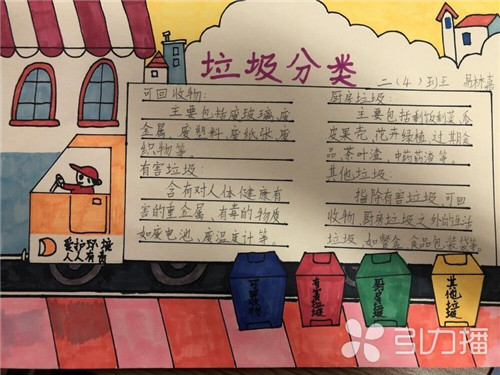 垃圾分类
二(4)
可回收物:
主要包括废玻璃,废
金属,废塑料,废纸张,废
织物等。
有害垃圾:
含有对人体健康有
害的重金属、有毒的物质
如废电池、废温度计等。
厨房垃圾:
主要包括剩饭剩菜、瓜
皮果壳、花卉绿植、过期食
品、茶叶渣、中药药渣等。
其他垃圾:
指除有害垃圾,可回
收物,厨房垃圾之外的生活
垃圾,如餐盒,食品包装袋等。
爱护环境
人人有责
可回收物
有害垃圾
厨房垃圾
其他垃圾
引力播